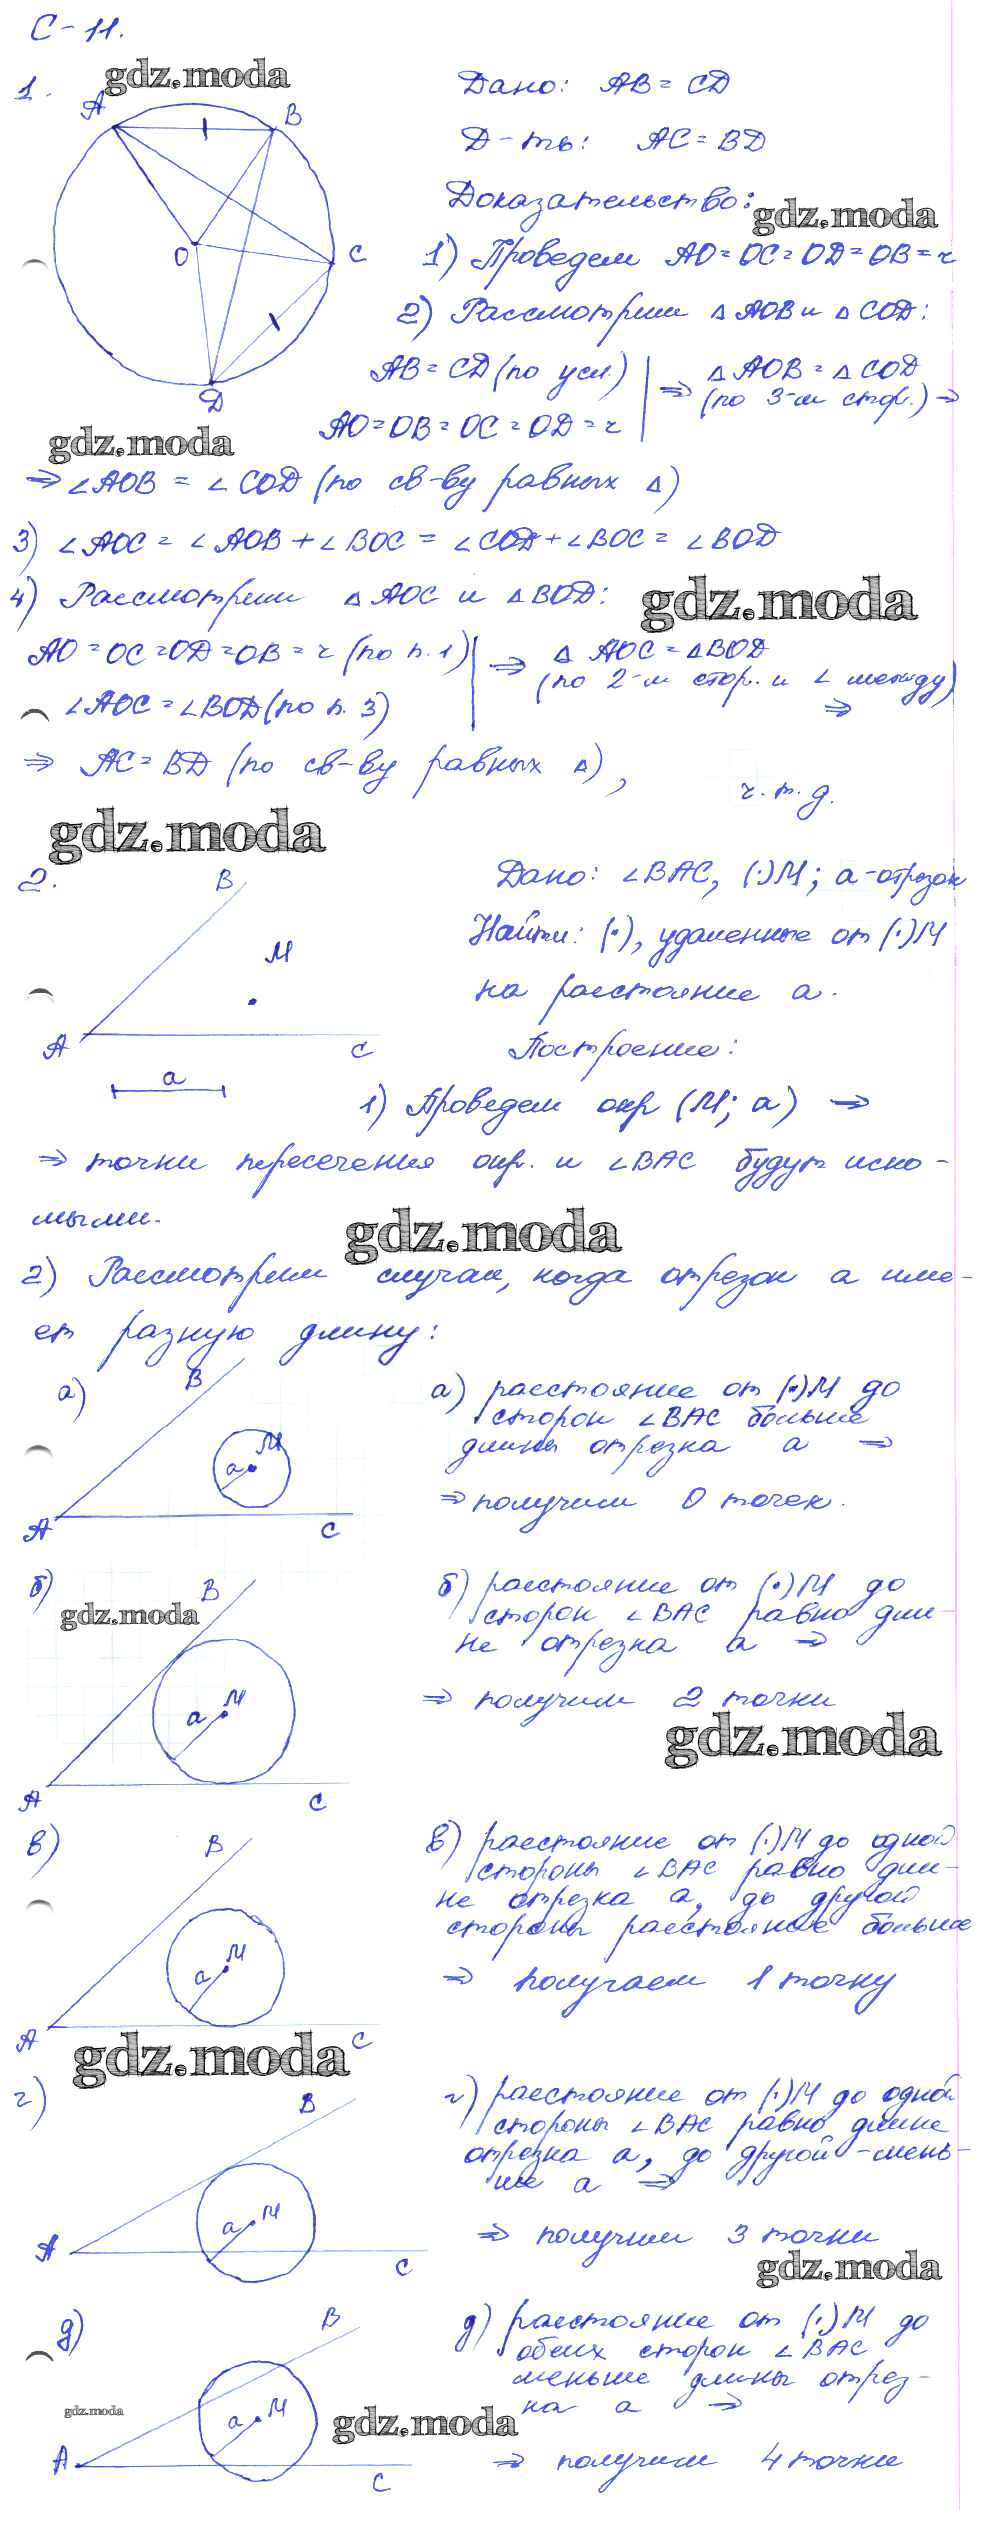 С-11.
gdz.moda
1.
A
B
O
C
D
Дано: AB = CD
Д-ть: AC = BD
Доказательство:
gdz.moda
1) Проведем AO = OC = OD = OB = r
2) Рассмотрим △ AOB и △ COD:
AB = CD (по усл)
AO = OB = OC = OD = r
⇒ △ AOB = △ COD
(по 3-м стор.) ⇒
gdz.moda
⇒ ∠AOB = ∠COD (по св-ву равных △)
3) ∠AOC = ∠AOB + ∠BOC = ∠COD + ∠BOC = ∠BOD
4) Рассмотрим △ AOC и △ BOD:
gdz.moda
AO = OC = OD = OB = r (по п. 1)
∠AOC = ∠BOD (по п. 3)
⇒ △ AOC = △ BOD
(по 2-м стор. и ∠ между)
⇒
⇒ AC = BD (по св-ву равных △),
ч. т. д.
gdz.moda
2.
B
M
A
C
a
Дано: ∠BAC, (·)M; a-отрезок
Найти: (·), удаленные от (·)M
на расстояние a.
Построение:
1) Проведем окр (M; a) ⇒
⇒ точки пересечения окр. и ∠BAC будут иско-
мыми.
gdz.moda
2) Рассмотрим случаи, когда отрезок a име-
ет разную длину:
а)
B
M
a
A
C
а) расстояние от (·)M до
сторон ∠BAC больше
длины отрезка a ⇒
⇒ получим 0 точек.
б)
B
gdz.moda
M
a
A
C
б) расстояние от (·)M до
сторон ∠BAC равно дли-
не отрезка a ⇒
⇒ получим 2 точки
gdz.moda
в)
B
M
a
A
C
в) расстояние от (·)M до одной
стороны ∠BAC равно дли-
не отрезка a, до другой
стороны расстояние больше
⇒ получаем 1 точку
gdz.moda
г)
B
M
a
A
C
г) расстояние от (·)M до одной
стороны ∠BAC равно длине
отрезка a, до другой - мень-
ше a ⇒
⇒ получим 3 точки
gdz.moda
д)
B
M
a
A
C
gdz.moda
gdz.moda
д) расстояние от (·)M до
обеих сторон ∠BAC
меньше длины отрез-
ка a ⇒
⇒ получим 4 точки